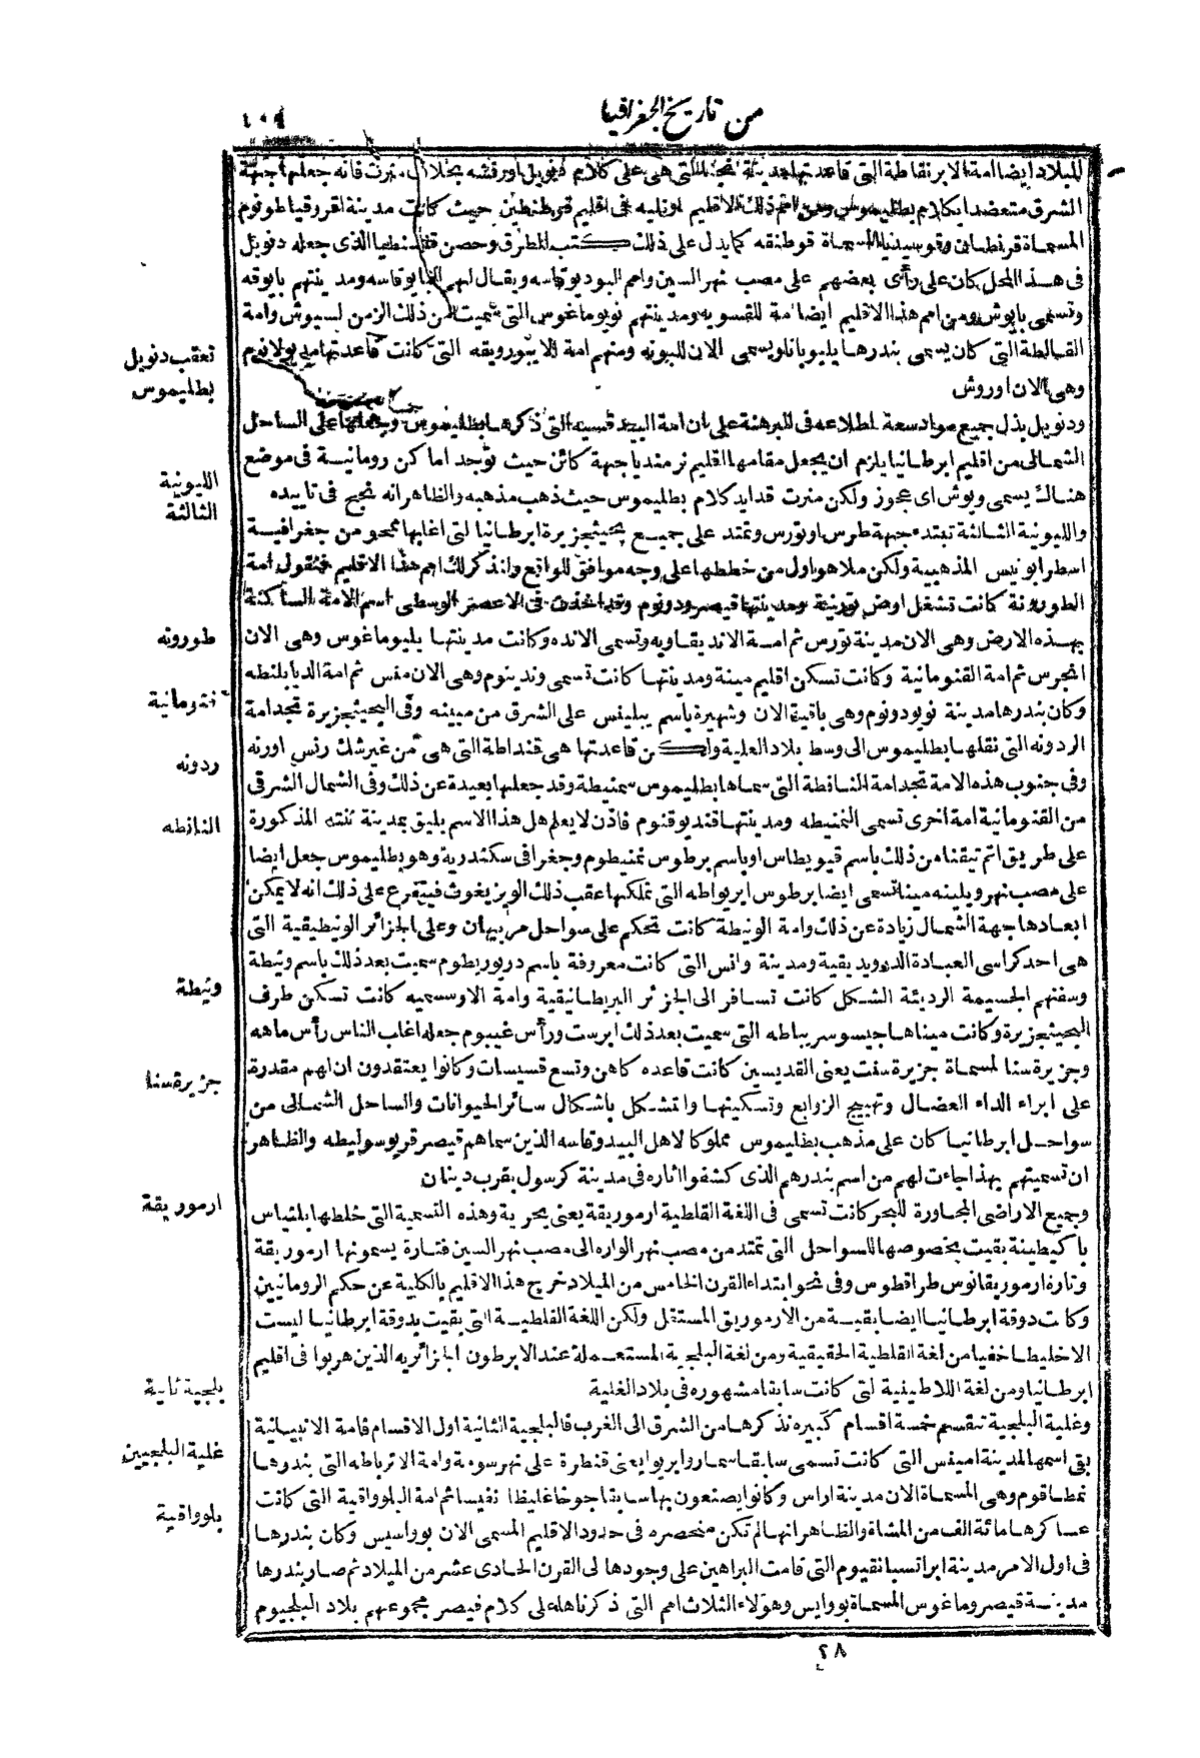 من تاريخ الجغرافيا
١٠٩
للبلاد ايضا امة الابرنقاطة التى قاعدتها مدينة التى هى على كلام دنويل اورفشه بخلاف منرت فانه جعلهم جهة
الشرق متعضدا بكلام بطليموس ومن امم ذلك الاقليم اونليه فى اقليم قرطنطين حيث كانت مدينة اقروقيا طونوم
المسماة قرنطانن وقوسيديا المسماة قوطنقه كما يدل على ذلك كتب الطرق وحصن قسطنطيا الذى جعله دنويل
فى هذا المحل كان على رأى بعضهم على مصب نهر السين وامم البوديوقاسه ويقال لهم البايوقاسه ومدينتهم بايوقه
وتسمى بايوش ومن امم هذا الاقليم ايضا مة للقسويه ومدينتهم نويوماغوس التى سميت من ذلك الزمن لسيوش وامة
القالطة التى كان يسمى بندرها يليوبانا ويسمى الان للبونه ومنهم امة الايبورويقه التى كانت قاعدتها مديولانوم
وهى الان اوروش
تعقب دنويل
بطليموس
ودنويل بذل جميع مواد سعة اطلاعه فى البرهنة على ان امة البيدقسيه التى ذكرها بطليموس وجعلها على الساحل
الشمالى من اقليم ابرطانيا يلزم ان يجعل مقامها اقليم نرمنديا جهة كائن حيث توجد اماكن رومانيسة فى موضع
هناك يسمى ويوش اى عجوز ولكن منرت قد ايد كلام بطليموس حيث ذهب مذهبه والظاهر انه نجح فى تاييده
الليونية
الثالثة
والليونية الثالثة تبتدء جهة طرس اوتورس وتمتد على جميع بحيثجزيرة ابرطانيا التى اغلبها ممحو من جغرافية
اسطرابونيس المذهبية ولكن ملاهو اول من خططها على وجه موافق للواقع ولنذكر لك امم هذا الاقليم فنقول امة
الطورونة كانت تشغل اوض تورنية ومدينتها قيصرودونوم وقد اخذت فى الاعصر الوسطى اسم الامة الساكنة
بهذه الارض وهى الان مدينة تورس ثم امة الانديقاويه وتسمى الانده وكانت مدينتها يليوماغوس وهى الان
طورونه
انجرس ثم امة القنومانية وكانت تسكن اقليم مينة ومدينتها كانت تسمى وندينوم وهى الان منس ثم امة الديابلنطه
وكان بندرها مدينة نويودونوم وهى باقية الان وشهيرة باسم يبلينس على الشرق من ميينه وفى البحيثجزيرة تجد امة
قنومانية
الردونه التى نقلها بطليموس الى وسط بلاد العلية ولكن قاعدتها هى قنداطة التى هى من غير شك رنس اورنه
ردونه
وفى جنوب هذه الامة تجد امة النانطة التى سماها بطليموس سمنيطة وقد جعلها بعيدة عن ذلك وفى الشمال الشرقى
من القنومانية امة اخرى تسمى النمنيطه ومدينتها قنديوقنوم فاذن لا يعلم هل هذا الاسم يليق بمدينة ننته المذكورة
النانطه
على طريق اتم تيقنا من ذلك باسم قيويطاس اوباسم برطوس نمنيطوم وجغرافى سكندرية وهو بطليموس جعل ايضا
على مصب نهر ويلينه مينا تسمى ايضا برطوس ابريواطه التى تملكها عقب ذلك الويزيغوث فيتفرع على ذلك انه لا يمكن
ابعادها جهة الشمال زيادة عن ذلك وامة الونيطة كانت تحكم على سواحل مربيهان وعلى الجزائر الونيطيقية التى
هى احد كراسى العبادة الدرويديقية ومدينة وانس التى كانت معروفة باسم دريوريطوم سميت بعد ذلك باسم ونيطة
ونيطة
وسفنهم الجسيمة الرديئة الشكل كانت تسافر الى الجزئر البريطانيقية وامة الاوسسميه كانت تسكن طرف
البحيثجزيرة وكانت ميناها جيسوسريباطه التى سميت بعد ذلك ابرست ورأس غبيوم جعله اغلب الناس رأس ماهه
وجزيرة سنا المسماة جزيرة سنت يعنى القديسين كانت قاعده كاهن وتسع قسيسات وكانوا يعتقدون ان لهم مقدرة
جزيرة سنا
على ابراء الداء العضال وتهييج الزوابع وتسكينها والتشكل باشكال سائر الحيوانات والساحل الشمالى من
سواحل ابرطانيا كان على مذهب بطليموس مملوكا لاهل البيدوقاسه الذين سماهم قيصر قريوسوليطه والظاهر
ان تسميتهم بهذا جاءت لهم من اسم بندرهم الذى كشفوا اثاره فى مدينة كرسول بقرب دينان
ارموريقة
وجميع الاراضى المجاورة للبحر كانت تسمى فى اللغة القلطية ارموريقة يعنى بحرية وهذه التسمية التى خلطها بلنياس
باكيطينة بقيت بخصوصها للسواحل التى تمتد من مصب نهر الواره الى مصب نهر السين فتارة يسمونها ارموريقة
وتارة ارموريقانوس طراقطوس وفى نحو ابتداء القرن الخامس من الميلاد خرج هذا الاقليم بالكلية عن حكم الرومانيين
وكانت دوقة ابرطانيا ايضا بقية من الارموريق المستقل ولكن اللغة القلطية التى بقيت بدوقة ابرطانيا ليست
الاخليطا خفيا من لغة القلطية الحقيقية ومن لغة البلجية المستعملة عند الابرطون الجزائريه الذين هربوا فى اقليم
ابرطانيا ومن لغة اللاطينية التى كانت سابقا مشهوره فى بلاد الغلية
بلجية ثانية
وغلية البلجية تنقسم خمسة اقسام كبيره نذكرها من الشرق الى الغرب فالبلجية الثانية اول الاقسام فامة الانبيانية
بقى اسمها لمدينة امينس التى كانت تسمى سابقا سمارو ابريوا يعنى قنطرة على نهر سومة وامة الاترباطه التى بندرها
غلية البلجيين
نمطاقوم وهى المسماة الان مدينة اراس وكانوا يصنعون بها سابقا جوخا غليظا نفيسا ثم امة البلوواقية التى كانت
عساكرها مائة الف من المشاة والظاهر انها لم تكن منحصره فى حدود الاقليم المسمى الان بوواسيس وكان بندرها
بلوواقية
فى اول الامر مدينة ابراتسبانقيوم التى قامت البراهين على وجودها الى القرن الحادى عشر من الميلاد ثم صار بندرها
مدينة قيصروماغوس المسماة بووايس وهؤلاء الثلاث امم التى ذكرناها على كلام قيصر مجموعهم بلاد البلجيوم
٢٨